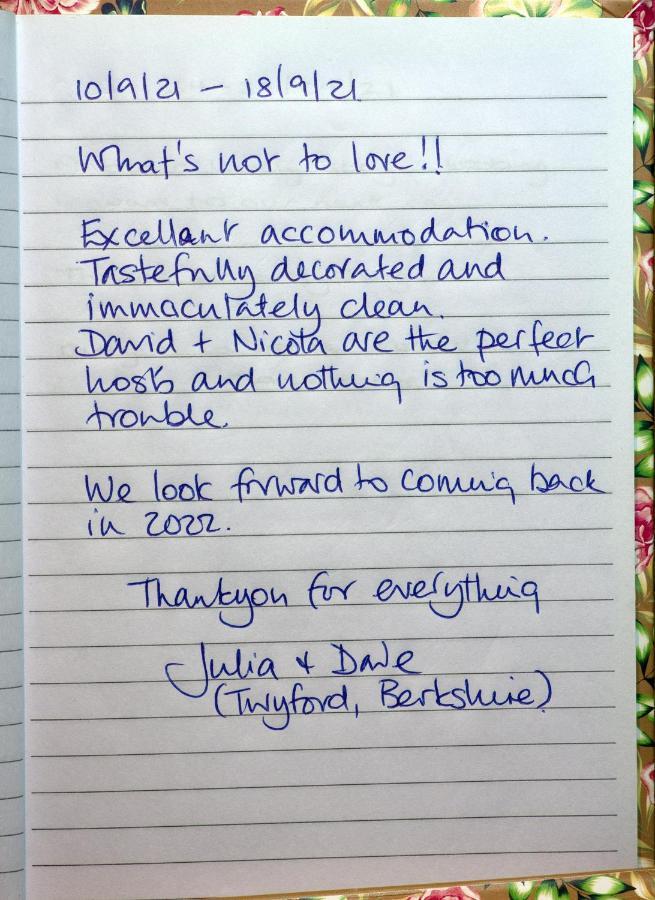 10/9/21 - 18/9/21
What's not to love!!
Excellant accommodation.
Tastefully decorated and
immaculately clean.
David + Nicola are the perfect
hosts and nothing is too much
trouble.
We look forward to coming back
in 2022.
Thankyou for everything
Julia + Dave
(Twyford, Berkshire)